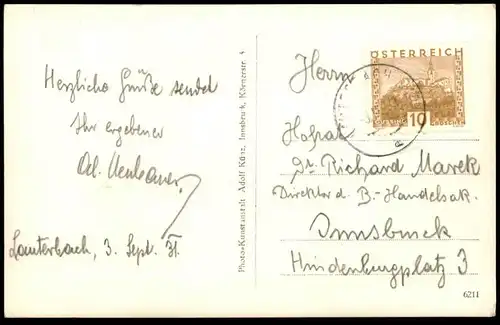 Herzliche Grüße sendet
Ihr ergebener
Ad.
Lauterbach, 3. Sept. 31.
Photo-Kunstanstalt Adolf Künz, Innsbruck, Körnerstr. 4
ÖSTERREICH
10
GROSCHEN
Herrn
Hofrat
Dr. Richard Marek
Direktor d. B.-Handelsak.
Innsbruck
Hindenburgplatz 3
6211